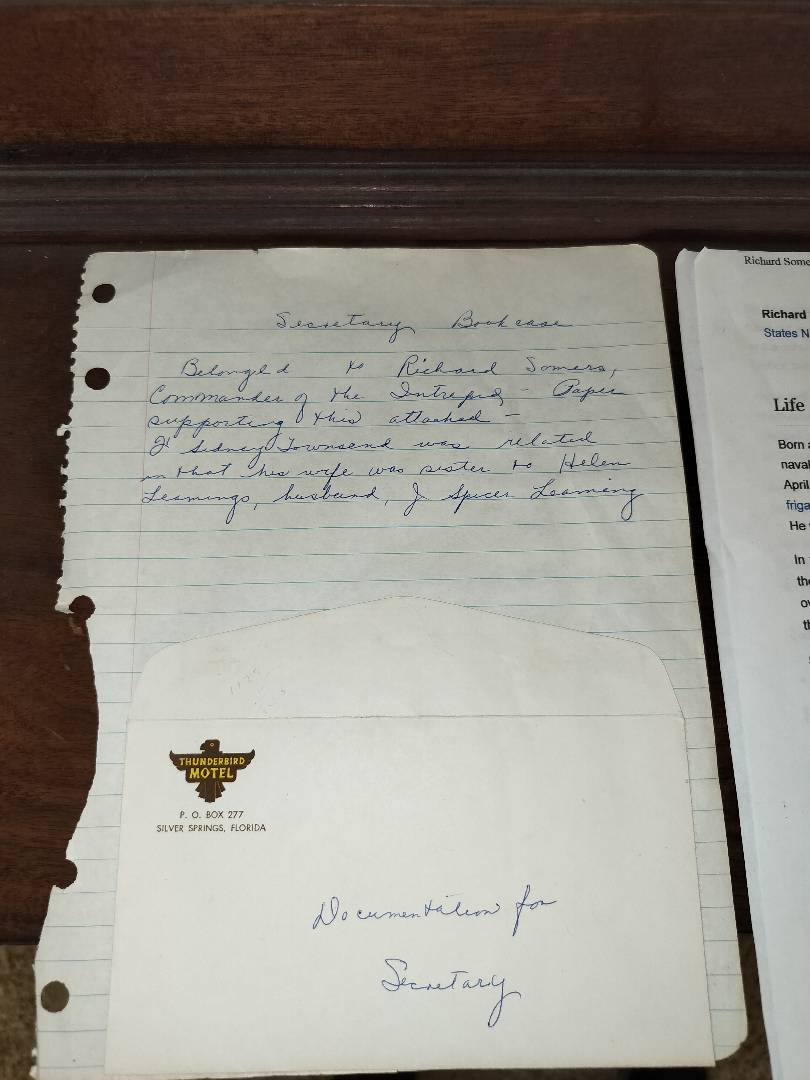 Secretary Bookcase
Belonged to Richard Somers,
Commander of the Intrepid - Paper
supporting this attached -
Sidney Townsend was related
in that his wife was sister to Helen
Leamings, husband, J Spicer Leaming
THUNDERBIRD
MOTEL
P. O. BOX 277
SILVER SPRINGS, FLORIDA
Documentation for
Secretary
Richard Some
Richard
States N
Life
Born a
naval
April
friga
He
In
the
ov
th